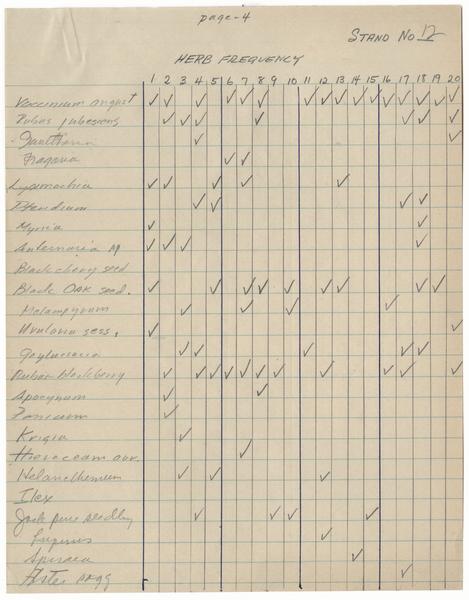 page-4
STAND NO 12
HERB FREQUENCY
1 2 3 4 5 6 7 8 9 10 11 12 13 14 15 16 17 18 19 20
Vaccinium angust
Rubus pubescens
Gaultheria
Fragaria
Lysimachia
Pteridium
Myrica
Antennaria
Black cherry seed
Black Oak seed.
Melampyrum
Uvularia sess.
Gaylussacia
Rubus blackberry
Apocynum
Panicum
Krigia
Hieraceum aur.
Helianthemum
Ilex
Jack pine seedling
Lupinus
Spiraea
Aster